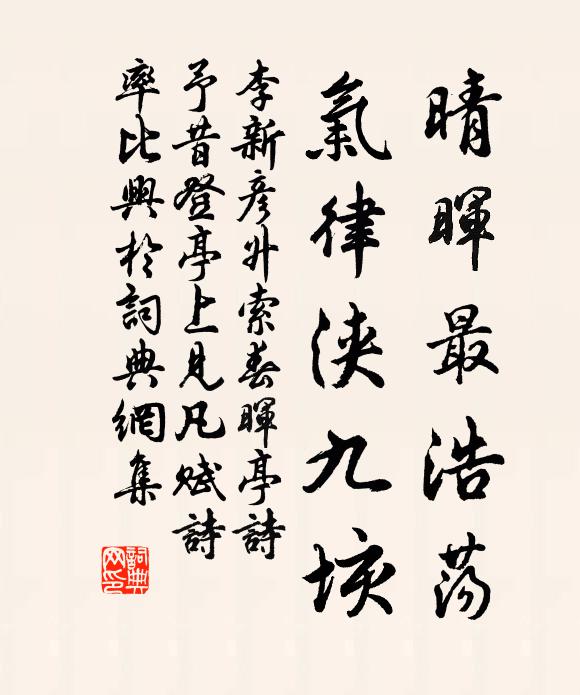 晴暉最浩蕩
氣律浹九垓
李新彥升索春暉亭詩
予昔登亭上見凡賦詩
率比興於詞典網集
詞典
网印